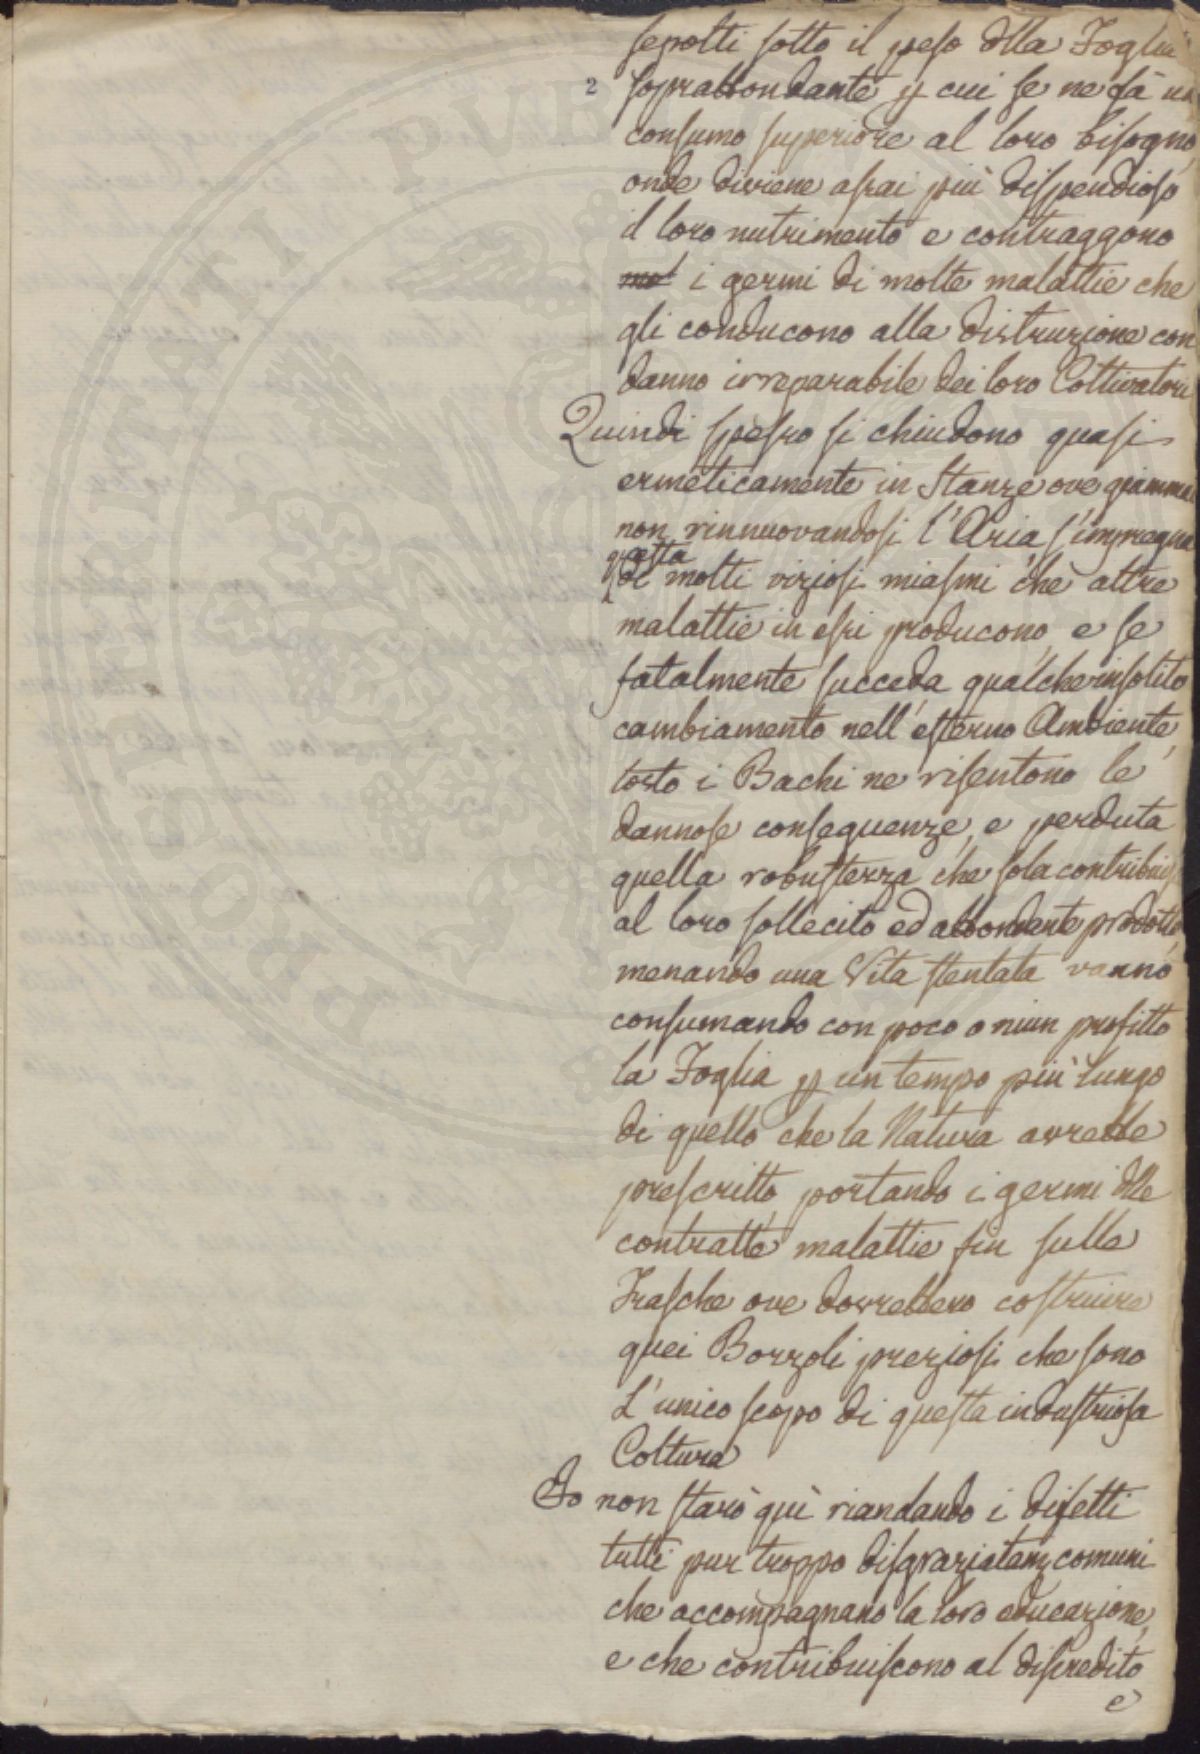 sepolti sotto il peso dlla Foglia
2 soprabbondante p cui se ne fà un
consumo superiore al loro bisogno,
onde diviene assai più dispendioso
il loro nutrimento e contraggono
i germi di molte malattie che
gli conducono alla distruzione con
danno irreparabile dei loro Coltivatori
Quindi spesso si chiudono quasi
ermeticamente in Stanze ove giammai
non rinnuovandosi l'Aria s'impregna
questa
di molti viziosi miasmi che altre
malattie in essi producono, e se
fatalmente succeda qualche insolito
cambiamento nell'esterno Ambiente,
tosto i Bachi ne risentono le
dannose conseguenze, e perduta
quella robustezza che sola contribuisce
al loro sollecito ed abbondante prodotto,
menando una Vita stentata vanno
consumando con poco o niun profitto
la Foglia p un tempo più lungo
di quello che la Natura avrebbe
prescritto, portando i germi dlle
contratte malattie fin sulle
Frasche ove dovrebbero costruire
quei Bozzoli preziosi che sono
L'unico scopo di questa industriosa
Coltura
Io non starò quì riandando i difetti
tutti pur troppo disgraziatam comuni
che accompagnano la loro educazione,
e che contribuiscono al discredito
e
PROSPERITATI PUBLICAE